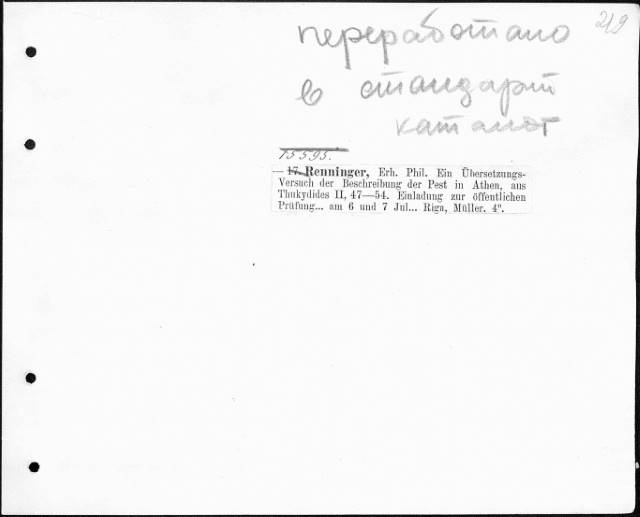 переработано
219
в стандарт
каталог
15595.
— 17. Renninger, Erh. Phil. Ein Übersetzungs-
Versuch der Beschreibung der Pest in Athen, aus
Thukydides II, 47—54. Einladung zur öffentlichen
Prüfung... am 6 und 7 Jul... Riga, Müller. 4°.